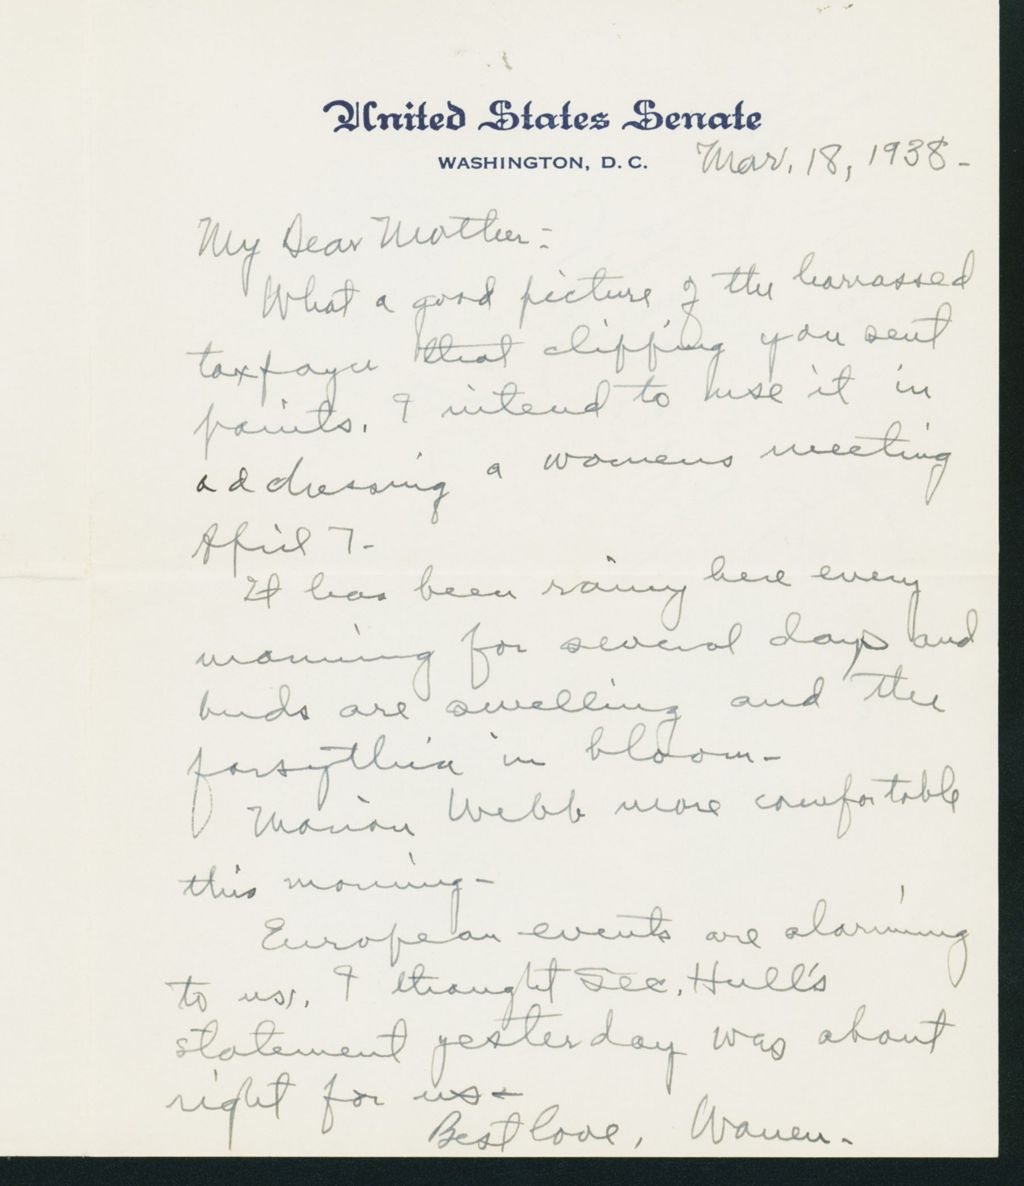 United States Senate
WASHINGTON, D. C.
Mar. 18, 1938-
My Dear Mother:-
What a good picture of the harrassed
taxpayer that clipping you sent
paints. I intend to use it in
addressing a womens meeting
April 7-
It has been rainy here every
morning for several days and
buds are swelling and the
forsythia in bloom-
Marion Webb more comfortable
this morning-
European events are alarming
to us. I thought Sec. Hull's
statement yesterday was about
right for us-
Best love, Warren-